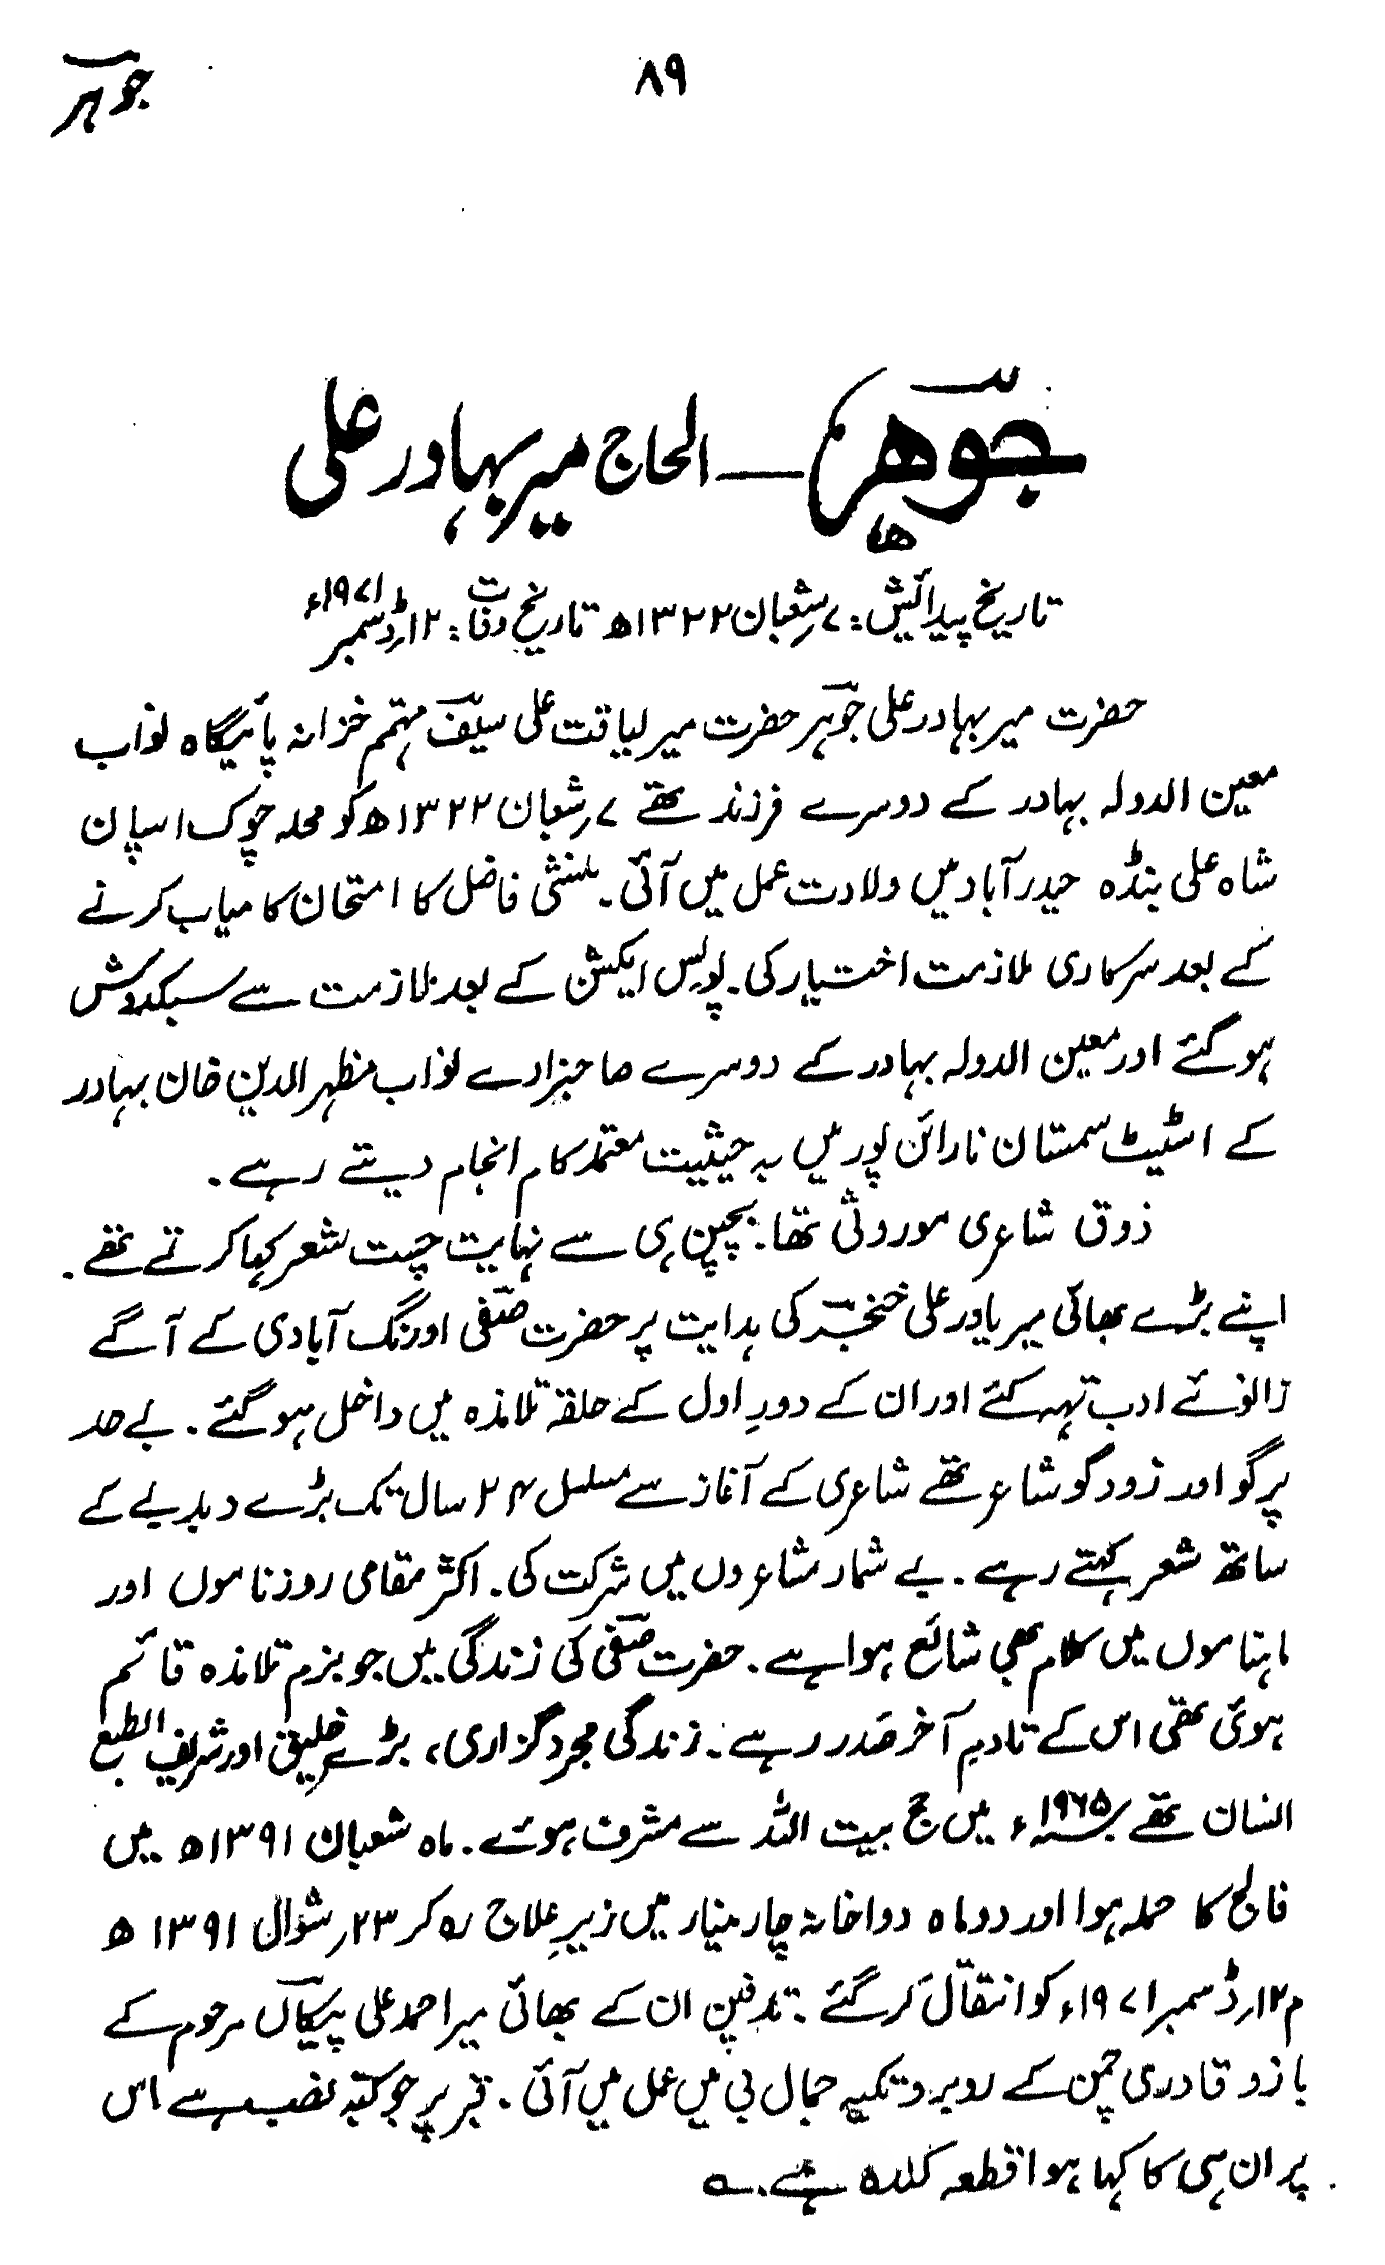 ۸۹
جوہر
جوہر — الحاج میر بہادر علی
تاریخ پیدائش: ۷؍شعبان ۱۳۲۲ھ تاریخ وفات: ۱۲؍ڈسمبر ۱۹۷۱ء
حضرت میر بہادر علی جوہر حضرت میر لیاقت علی سیف مہتمم خزانہ پائیگاہ نواب
معین الدولہ بہادر کے دوسرے فرزند تھے ۷؍شعبان ۱۳۲۲ھ کو محلہ چوک اسپان
شاہ علی بنڈہ حیدرآباد میں ولادت عمل میں آئی۔ منشی فاضل کا امتحان کامیاب کرنے
کے بعد سرکاری ملازمت اختیار کی۔ پولس ایکشن کے بعد ملازمت سے سبکدوش
ہوگئے اور معین الدولہ بہادر کے دوسرے صاحبزادے نواب مظہر الدین خان بہادر
کے اسٹیٹ سمستان نارائن پور میں بہ حیثیت معتمد کام انجام دیتے رہے۔
ذوق شاعری موروثی تھا۔ بچپن ہی سے نہایت چست شعر کہا کرتے تھے۔
اپنے بڑے بھائی میر یاور علی خنجر کی ہدایت پر حضرت صفی اورنگ آبادی کے آگے
زانوئے ادب تہہ کئے اور ان کے دورِ اول کے حلقہ تلامذہ میں داخل ہوگئے۔ بے حد
پرگو اور زودگو شاعر تھے شاعری کے آغاز سے مسلسل ۲۴ سال تک بڑے دبدبے کے
ساتھ شعر کہتے رہے۔ بے شمار مشاعروں میں شرکت کی۔ اکثر مقامی روزناموں اور
ماہناموں میں کلام بھی شائع ہوا ہے۔ حضرت صفی کی زندگی میں جو بزم تلامذہ قائم
ہوئی تھی اس کے تادمِ آخر صدر رہے۔ زندگی مجرد گزاری، بڑے خلیق اور شریف الطبع
انسان تھے ۱۹۶۵ء میں حج بیت اللہ سے مشرف ہوئے۔ ماہ شعبان ۱۳۹۱ھ میں
فالج کا حملہ ہوا اور دو ماہ دواخانہ چارمنیار میں زیرِ علاج رہ کر ۲۳؍شوال ۱۳۹۱ھ
م ۱۲؍ڈسمبر ۱۹۷۱ء کو انتقال کر گئے۔ تدفین ان کے بھائی میر احمد علی پیکاں مرحوم کے
بازو قادری چمن کے روبرو تکیہ جمال بی میں عمل میں آئی۔ قبر پر جو کتبہ نصب ہے اس
پر ان ہی کا کہا ہوا قطعہ کندہ ہے۔ ؎